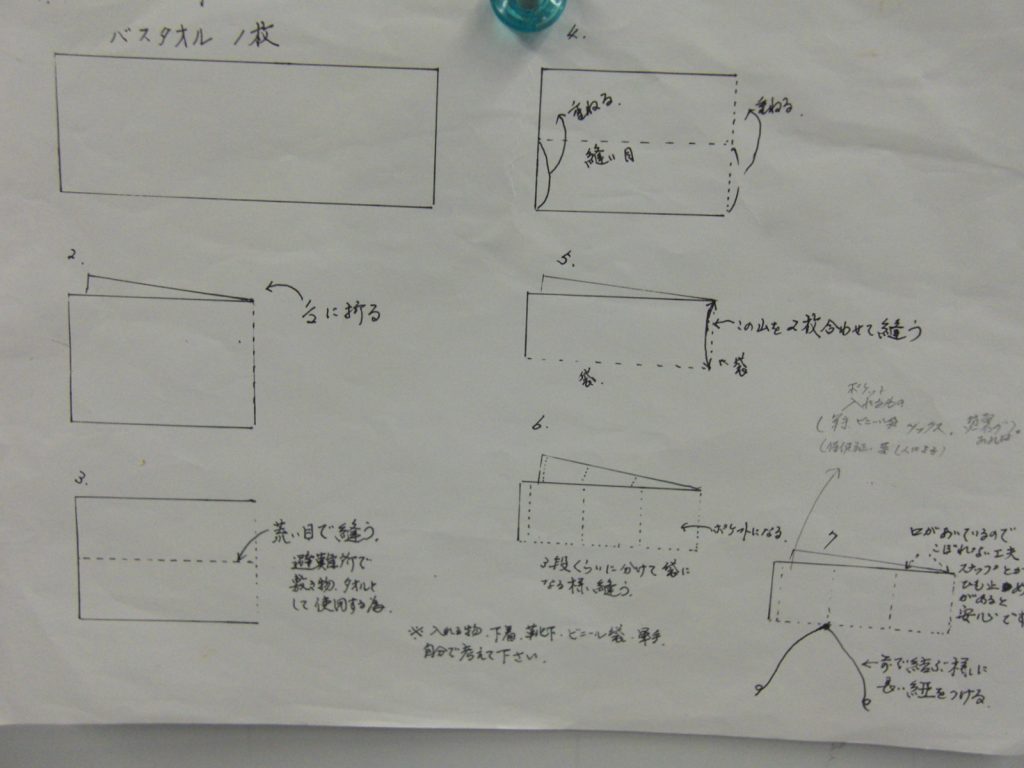 バスタオル 1枚
2.
1/2に折る
3.
荒い目で縫う。
避難所で
敷き物、タオルと
して使用する為。
4.
重ねる。
重ねる。
縫い目
5.
この山を2枚合わせて縫う
袋
袋
6.
ポケットになる
3段くらいに分けて袋に
なる様に縫う。
※入れる物、下着、靴下、ビニール袋、軍手、
自分で考えて下さい。
ポケット
入れるもの
7
口があいているので
こぼれない工夫
スナップとか
ひも止め
があると
安心です
前で結ぶ様に
長い紐をつける。